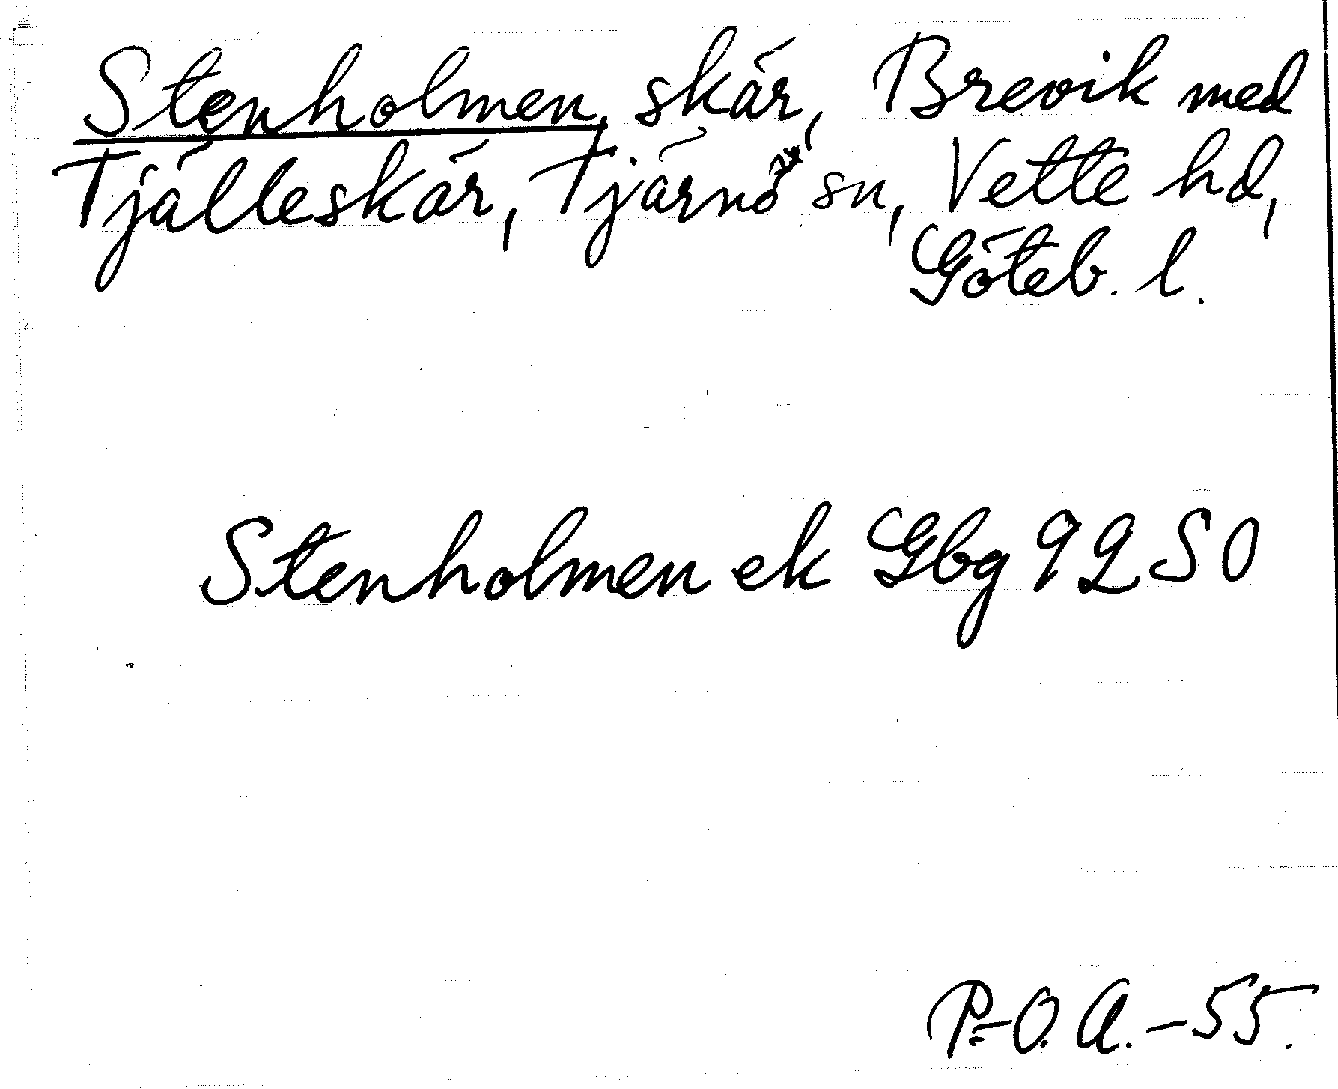 Stenholmen, skär, Brevik med
Tjälleskär, Tjärnö sn, Vette hd,
Göteb. l.
Stenholmen ek Gbg 92 SO
P.-O. A. -55.